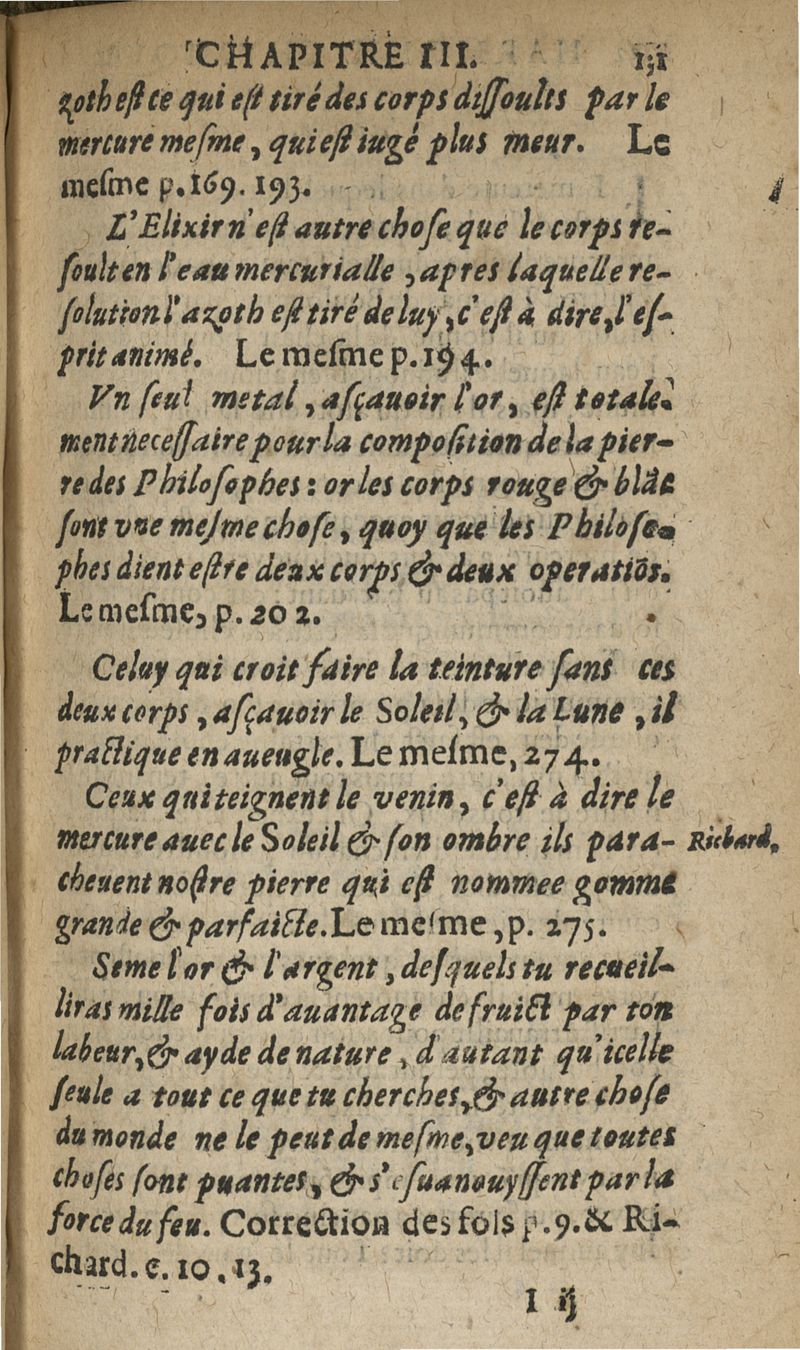 CHAPITRE III. 131
zoth eſt ce qui eſt tiré des corps diſſoults par le
mercure meſme, qui eſt iugé plus meur. Le
meſme p. 169. 193.
L'Elixir n'eſt autre choſe que le corps re-
ſoult en l'eau mercurialle, apres laquelle re-
ſolution l'azoth eſt tiré de luy, c'eſt à dire, l'eſ-
prit animé. Le meſme p. 194.
Vn ſeul metal, aſçauoir l'or, eſt totale-
ment neceſſaire pour la compoſition de la pier-
re des Philoſophes: or les corps rouge & blāc
ſont vne meſme choſe, quoy que les Philoſo-
phes dient eſtre deux corps & deux operatiōs.
Le meſme, p. 202.
Celuy qui croit faire la teinture ſans ces
deux corps, aſçauoir le Soleil, & la Lune, il
practique en aueugle. Le meſme, 274.
Ceux qui teignent le venin, c'eſt à dire le
mercure auec le Soleil & ſon ombre ils para-
Richard,
cheuent noſtre pierre qui eſt nommee gomme
grande & parfaicte. Le meſme, p. 275.
Seme l'or & l'argent, deſquels tu recueil-
liras mille fois d'auantage de fruict par ton
labeur, & ayde de nature, d'autant qu'icelle
ſeule a tout ce que tu cherches, & autre choſe
du monde ne le peut de meſme, veu que toutes
choſes ſont puantes, & s'eſuanouyſſent par la
force du feu. Correction des fols p. 9. & Ri-
chard. c. 10. 13.
I ij